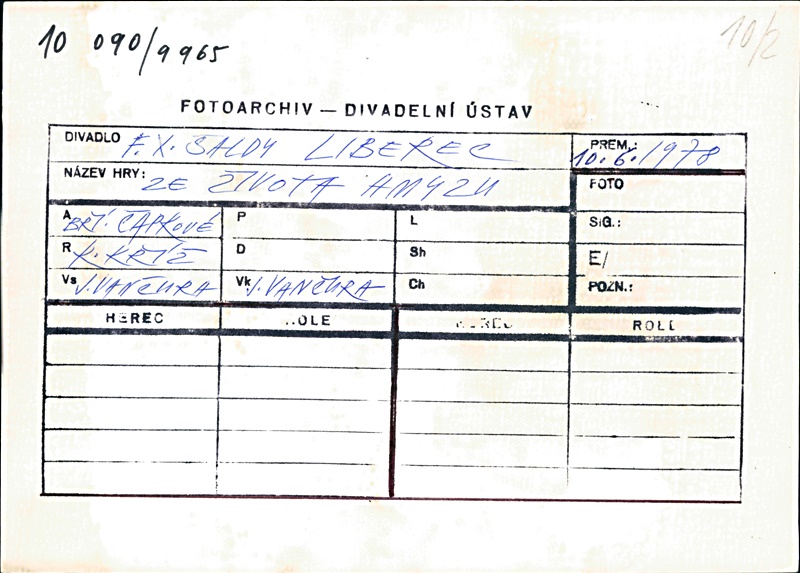 10 090/9965
10/2
FOTOARCHIV — DIVADELNÍ ÚSTAV
DIVADLO F. X. ŠALDY LIBEREC
PREM.: 10. 6. 1978
NÁZEV HRY: ZE ŽIVOTA HMYZU
FOTO
A BŘÍ. ČAPKOVÉ P L SIG.:
R K. KŘÍŽ D Sh E/
Vs J. VANČURA Vk J. VANČURA Ch POZN.:
HEREC ROLE HEREC ROLE